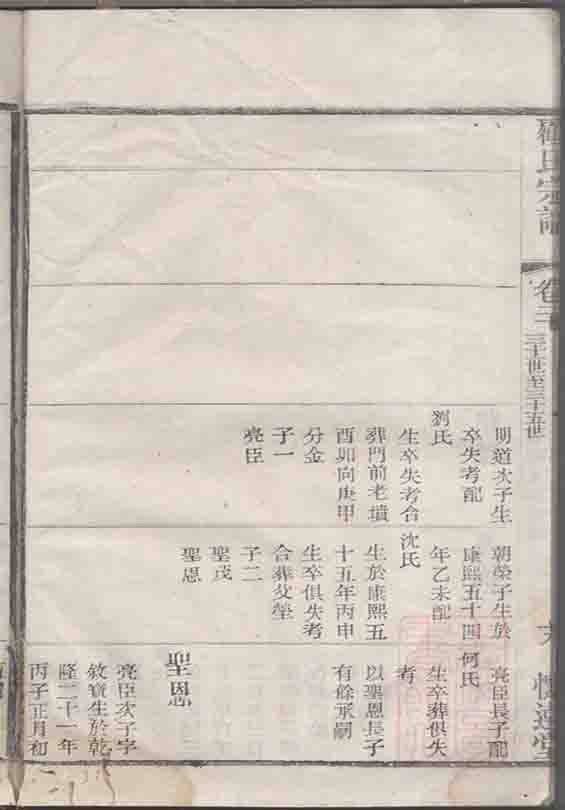 羅氏宗譜
卷三
三十世至三十五世
明道次子生
卒失考配
劉氏
生卒失考合
葬門前老墳
酉卯向庚甲
分金
子一
亮臣
朝榮子生於
康熙五十四
年乙未配
沈氏
生於康熙五
十五年丙申
生卒俱失考
合葬父塋
子二
聖茂
聖恩
亮臣長子配
何氏
生卒葬俱失
考
以聖恩長子
有餘承嗣
聖恩
亮臣次子字
敘寶生於乾
隆二十一年
丙子正月初